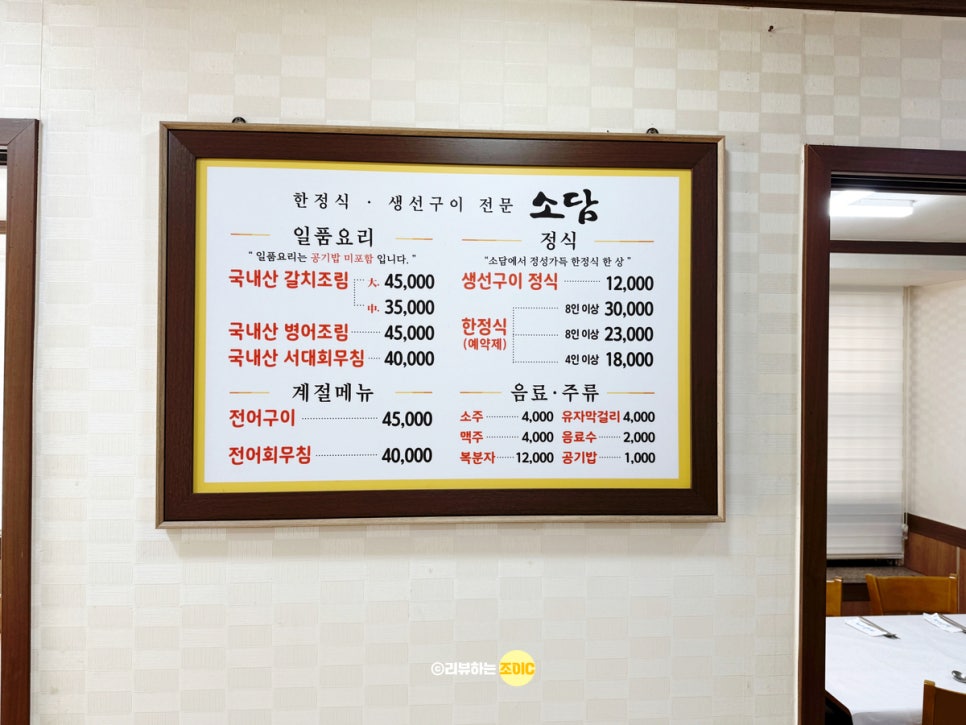 한정식 · 생선구이 전문 소담
일품요리
" 일품요리는 공기밥 미포함 입니다. "
국내산 갈치조림 大 45,000
中 35,000
국내산 병어조림 45,000
국내산 서대회무침 40,000
계절메뉴
전어구이 45,000
전어회무침 40,000
정식
"소담에서 정성가득 한정식 한 상 "
생선구이 정식 12,000
한정식 (예약제)
8인 이상 30,000
8인 이상 23,000
4인 이상 18,000
음료·주류
소주 4,000 유자막걸리 4,000
맥주 4,000 음료수 2,000
복분자 12,000 공기밥 1,000
©리뷰하는 조미C